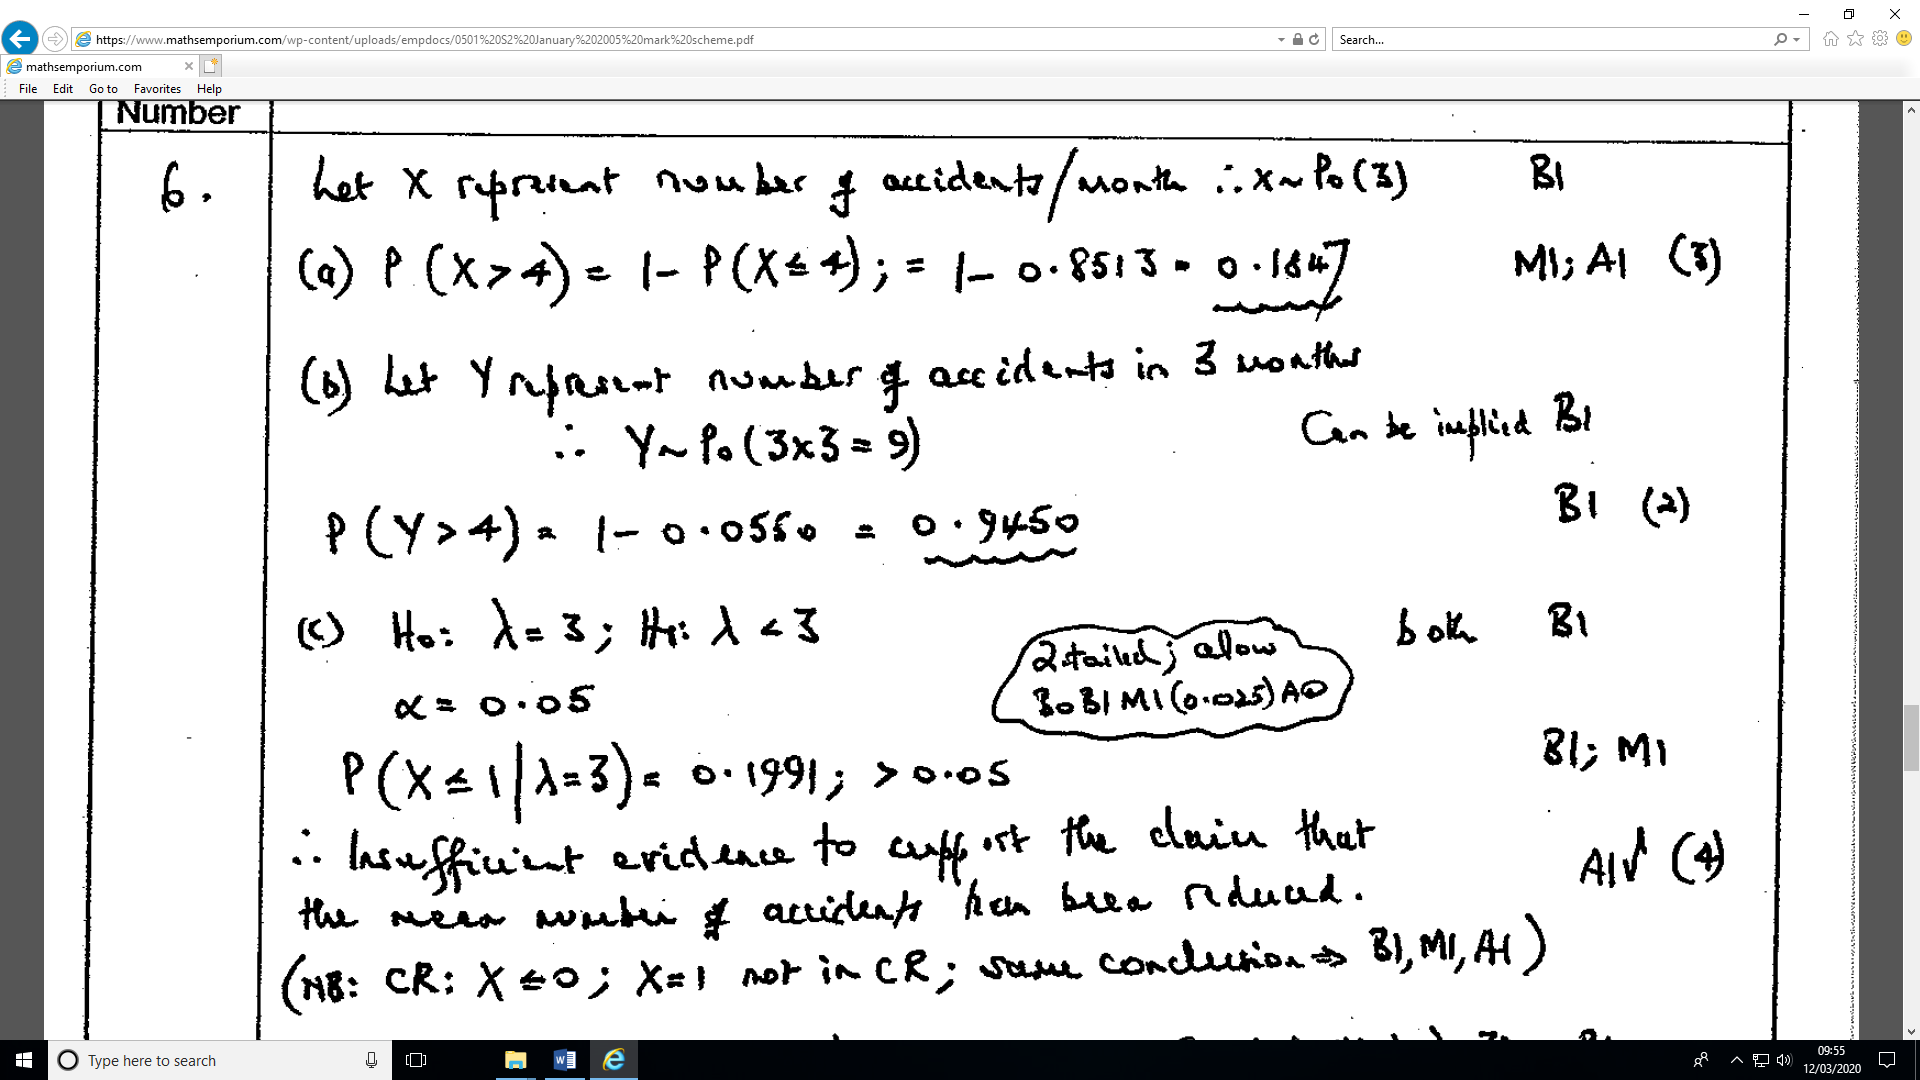 https://www.mathsemporium.com/wp-content/uploads/empdocs/0501%20S2%20January%202005%20mark%20scheme.pdf
Search...
mathsemporium.com
File Edit Go to Favorites Help
Number
6. Let X represent number of accidents/month ∴ X ~ Po(3) B1
(a) P(X > 4) = 1 - P(X ≤ 4); = 1 - 0.8513 = 0.1847 M1; A1 (3)
(b) Let Y represent number of accidents in 3 months
∴ Y ~ Po(3x3 = 9) Can be implied B1
P(Y > 4) = 1 - 0.0550 = 0.9450 B1 (2)
(c) H0: λ = 3; H1: λ < 3 both B1
α = 0.05
2 tailed; allow
B0B1M1(0.025)A0
P(X ≤ 1 | λ = 3) = 0.1991; > 0.05 B1; M1
∴ Insufficient evidence to support the claim that
the mean number of accidents has been reduced. A1√ (4)
(NB: CR: X ≤ 0; X = 1 not in CR; same conclusion ⇒ B1, M1, A1)
Type here to search
09:55
12/03/2020